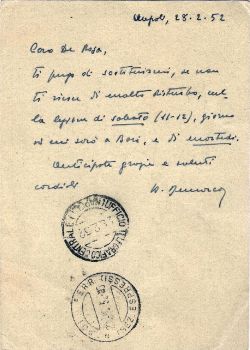 Napoli, 28.2.52
Caro De Rosa,
ti prego di sostituirmi, se non
ti riesce di molto disturbo, nel
la lezione di sabato (11-12), giorno
in cui sarò a Bari, e di martedì.
Anticipate grazie e saluti
cordiali
UFFICIO TELEGRAFICO CENTRALE
FERR ESPRESSI